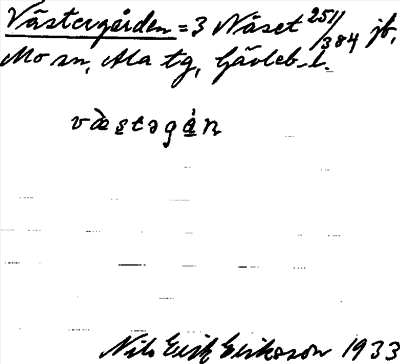 Västergården = 3 Näset 251/384 jb,
Mo sn, Ala tg, Gävleb. l.
væstəgån
Nils Erik Eriksson 1933